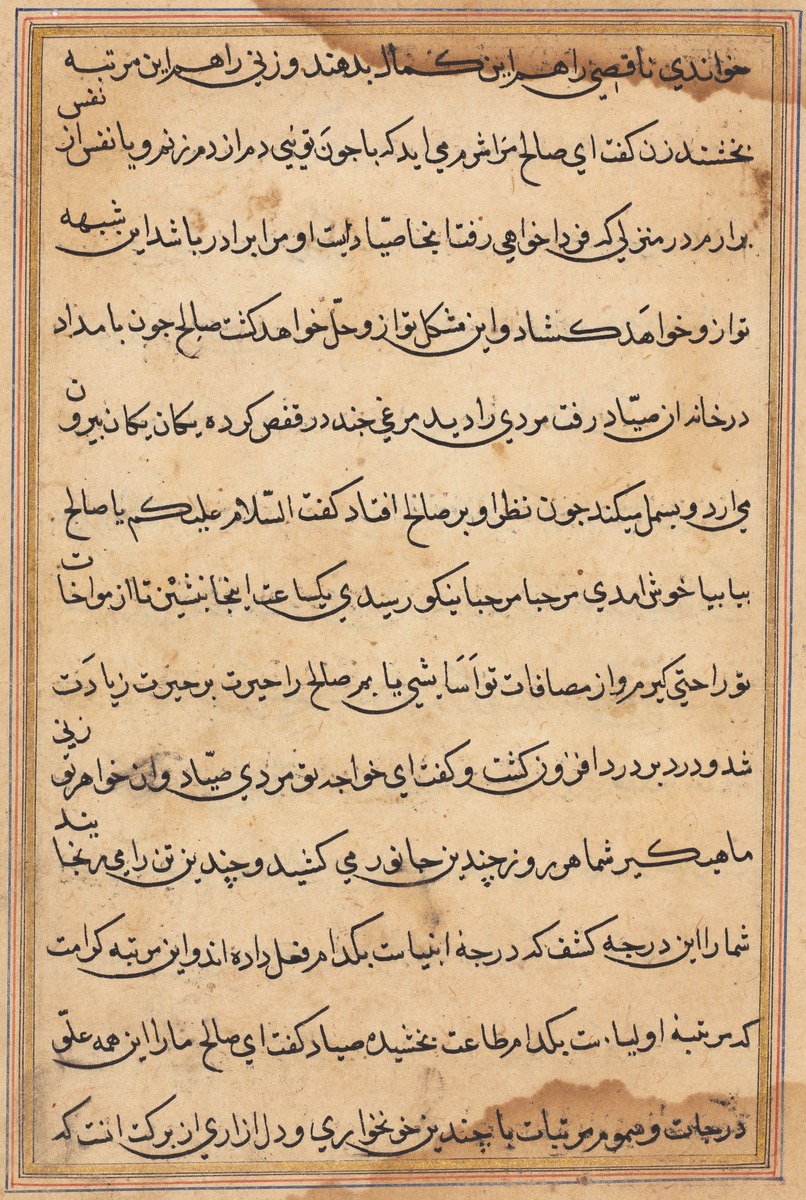 خواندي ناقصی را هم این کمال بدهند و زنی را هم این مرتبه
بخشند زن کفت ای صالح مرا شرم می اید که با جون توئی دم از دم زنم و یا نفس از نفس
برارم در منزلی که فردا خواهی رفت انجا صیّادیست او مرا برادر باشد این شبهه
تو از و خواهَد کشاد و این مشکل تو از و حلّ خواهد کشت صالح جون بامداد
در خانه ان صیّاد رفت مردي را دید مرغی جند در قفص کرده یکان یکان بیرون
می ارد و بسمل میکند جون نظر او بر صالح افتاد کفت السّلام علیکم یا صالح
بیا بیا خوش امدي مرحبا مرحبا نیکو رسیدي یکساعت اینجا بنشین تا از مواخات
تو راحتی کیرم و از مصافات تو اَسَایشی یابم صالح را حیرت بر حیرت زیادَت
شد و درد بر درد افزون کشت و کفت ای خواجه تو مردي صیّاد و ان خواهر تو زنی
ماهیکیر شما هر روز چندین جانور می کشید و چندین تن را می رنجانید
شما را این درجه کشف که درجهٔ انبیاست بکدام فعل داده اند و این مرتبه کرامت
که مرتبهٔ اولیاست بکدام طاعت بخشیده صیاد کفت ای صالح ما را این همه علّو
درجات و سمو مرتبات با چندین خونخواري و دل ازاري از برکت انست که